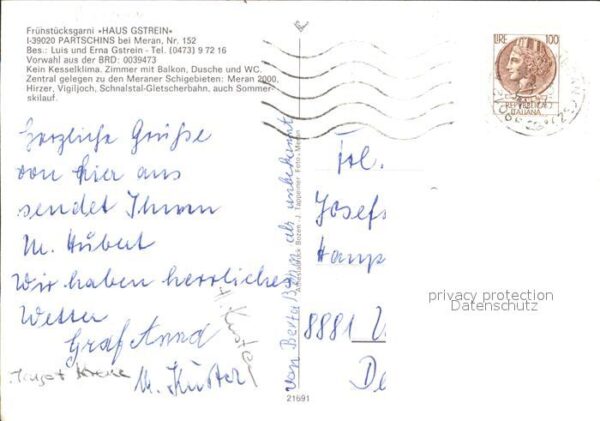 Frühstücksgarni »HAUS GSTREIN«
I-39020 PARTSCHINS bei Meran, Nr. 152
Bes.: Luis und Erna Gstrein - Tel. (0473) 9 72 16
Vorwahl aus der BRD: 0039473
Kein Kesselklima. Zimmer mit Balkon, Dusche und WC.
Zentral gelegen zu den Meraner Schigebieten: Meran 2000,
Hirzer, Vigiljoch, Schnalstal-Gletscherbahn, auch Sommer-
skilauf.
Herzliche Grüße
von hier aus
sendet Ihnen
M. Hubert
Wir haben herrliches
Wetter
Graf Anna
M. Kuster
H. Kuster
von Berta als unbekannt
Bozen - J. Tappeiner Foto - Meran
21691
LIRE 100
REPUBBLICA
ITALIANA
Frl.
Josefs
Haup
8881
De
privacy protection
Datenschutz